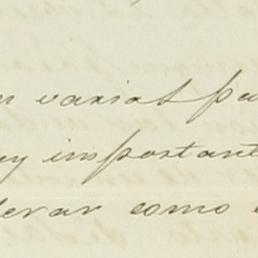 en varias pa
uy important
derar como